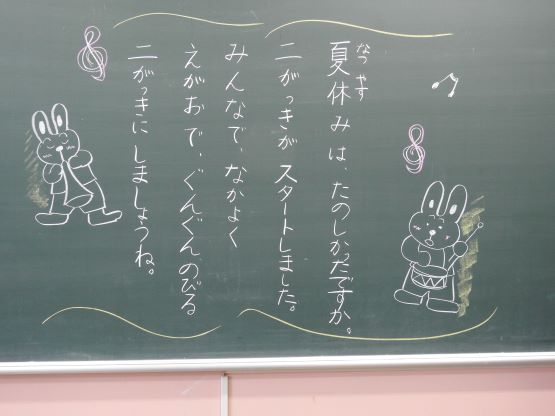 夏休みは、たのしかったですか。
二がっきが スタートしました。
みんなで、なかよく
えがおで、ぐんぐん のびる
二がっきに しましょうね。
なつ やす